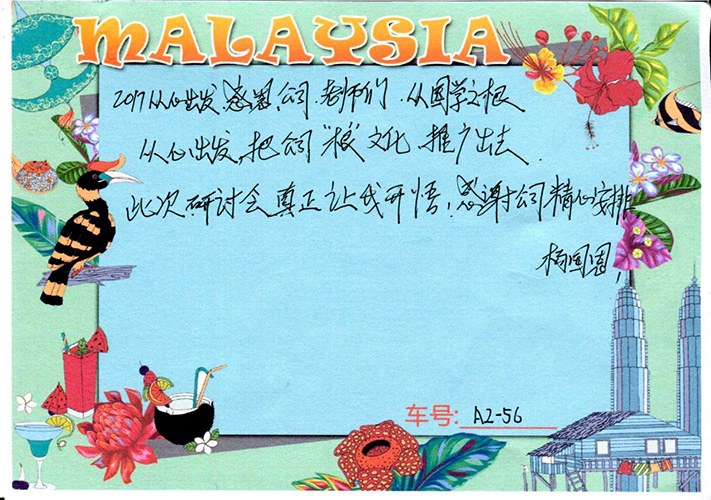 MALAYSIA
2017从心出发感恩公司老师们.从国学文根
从心出发,把公司"根"文化推广出去.
此次研讨会真正让我开悟,感谢公司精心安排
杨国园,
车号: A2-56